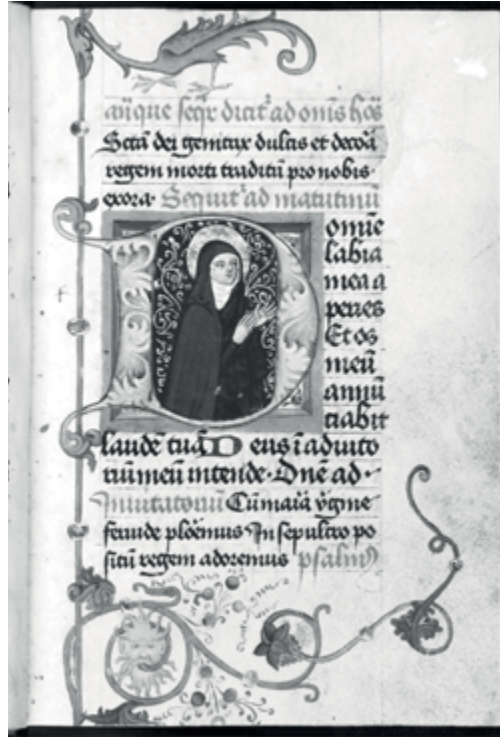 añque seqr dicit' ad oms hõs
Sctã dei genitrix dulcis et decoã
regem morti traditũ pro nobis
exora· Sequit' ad matutinũ
Domĩe
labia
mea a
peries
Et os
meũ
annũ
tiabit
laudẽ tuã Deus ĩ adiuto
riũ meũ intende· Dnẽ ad·
Inuitatoriũ Cũ maĩã ỹgine
feruide ploẽmus In sepulcro po
sitũ regem adoremus psalm9